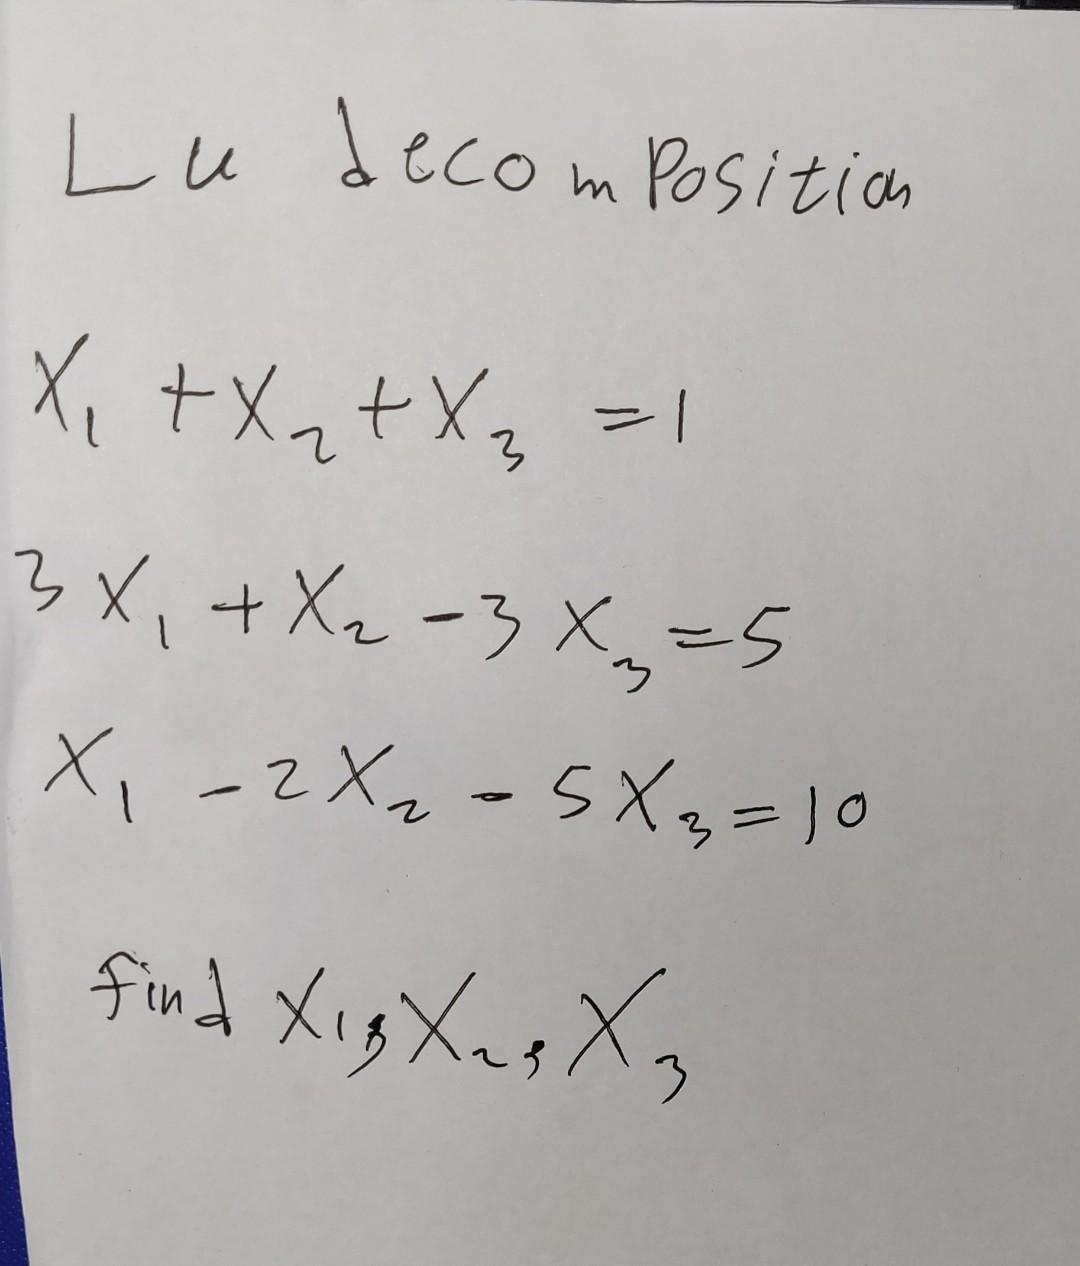 Lu decomPosition
X₁ + X₂ + X₃ = 1
3X₁ + X₂ - 3X₃ = 5
X₁ - 2X₂ - 5X₃ = 10
find X₁, X₂, X₃